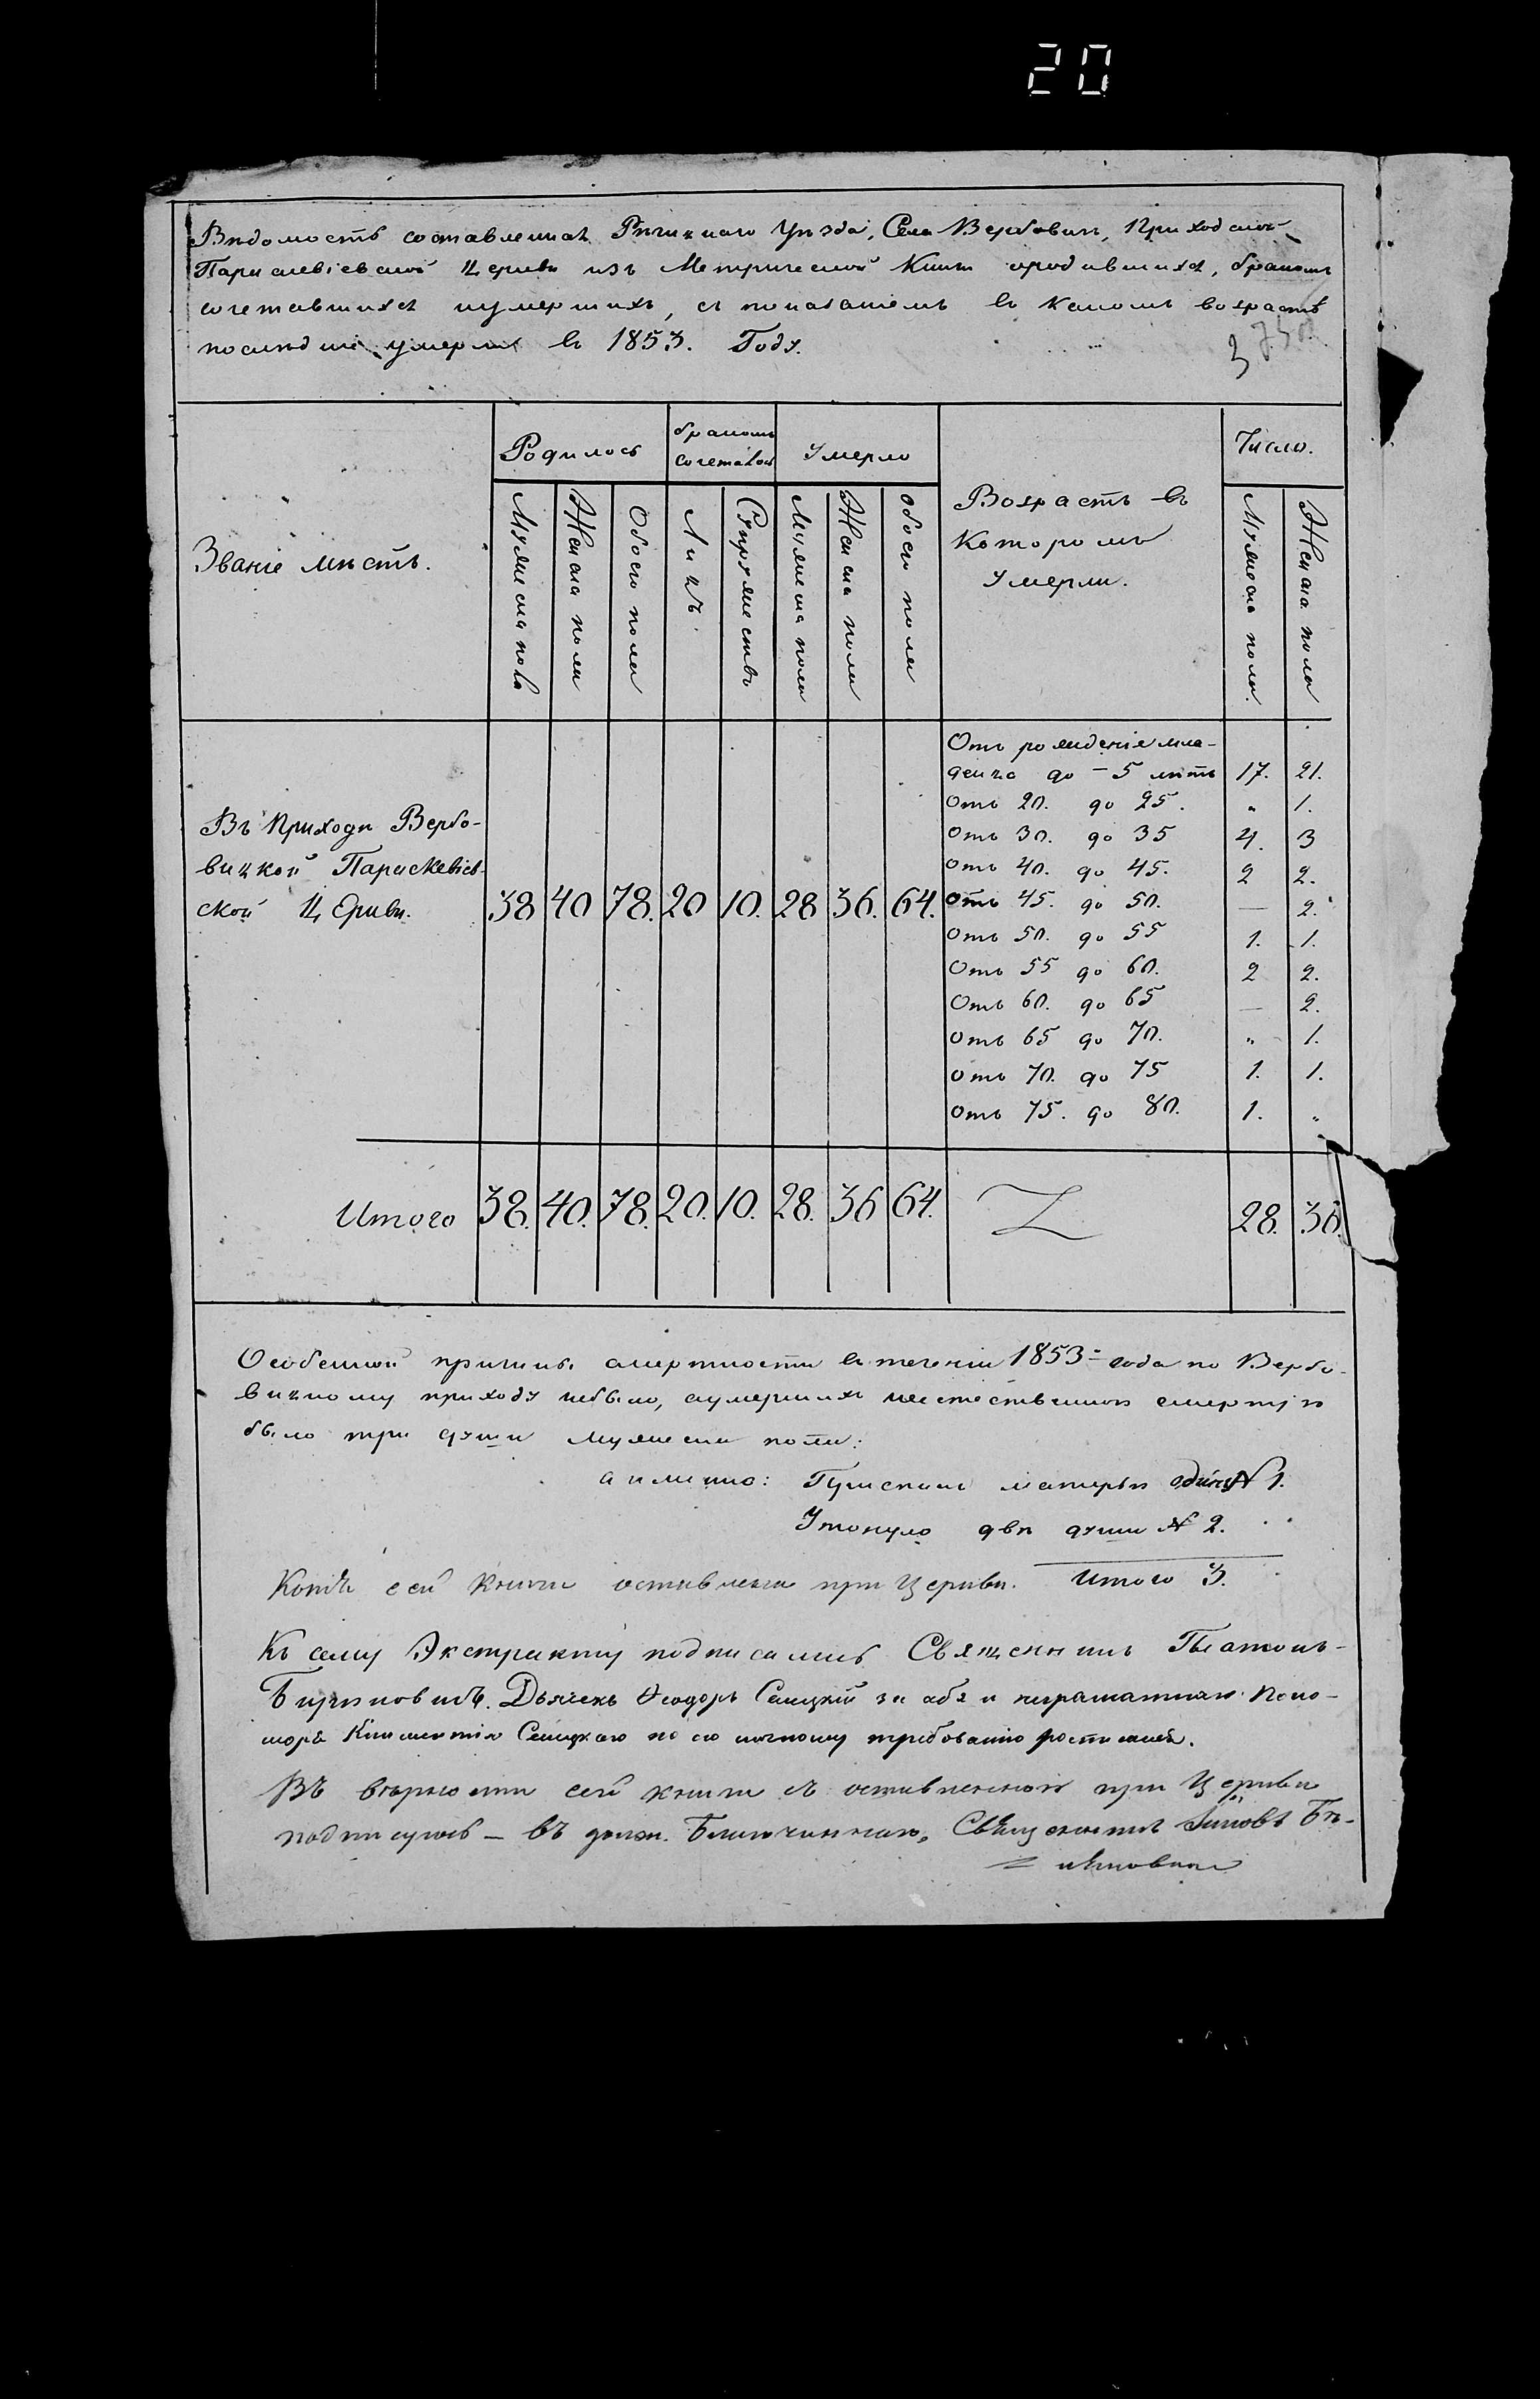 20
Вѣдомость составленная Рѣчицкаго Уѣзда, Села Вербовичъ, Приходской
Параскевіевской Церкви изъ Метрической Книги ородившихся, бракомъ
сочетавшихся иумершихъ, съ показаніемъ въ какомъ возрастѣ
послѣдніе умерли въ 1853. Году.
3
Званіе мѣстъ.
Родилось
бракомъ сочеталось
Умерло
Возрастъ въ
Которомъ
Умерли.
Число.
Мужеска пола
Женска пола
Обоего пола
Лицъ.
Супружествъ
Мужеска пола
Женска пола
Обоего пола
Мужеска пола.
Женска пола
Въ Приходѣ Вербо-
вицкой Параскевіев-
ской Церкви.
38 40 78. 20 10. 28 36. 64.
Отъ рожденія мла-
денца до - 5 лѣтъ 17. 21.
Отъ 20. до 25. „ 1.
Отъ 30. до 35 4. 3
Отъ 40. до 45. 2 2.
Отъ 45. до 50. — 2.
Отъ 50. до 55 1. 1.
Отъ 55 до 60. 2 2.
Отъ 60. до 65 — 2.
Отъ 65 до 70. „ 1.
Отъ 70. до 75 1. 1.
Отъ 75. до 80. 1. „
Итого 38. 40. 78. 20. 10. 28. 36 64. 28. 36.
Особенной причины смертности въ теченіи 1853= года по Вербо-
вицкому приходу небыло, аумершихъ неестественною смертію
было три души мужеска пола:
а имянно: одинъ N 1.
Утонуло двѣ души N 2.
Копія сей Книги оставлена при Церкви. Итого 3.
Къ сему Экстракту подписались Священникъ Платонъ
Дьячекъ Ѳеодоръ Сенцкій за себя и неграматнаго Поно-
моря Сенцкаго по его личному требованію росписался.
Въ вѣрности сей книги съ оставленною при Церкви
подписуюсь — въ долж. Благочиннаго, Священникъ